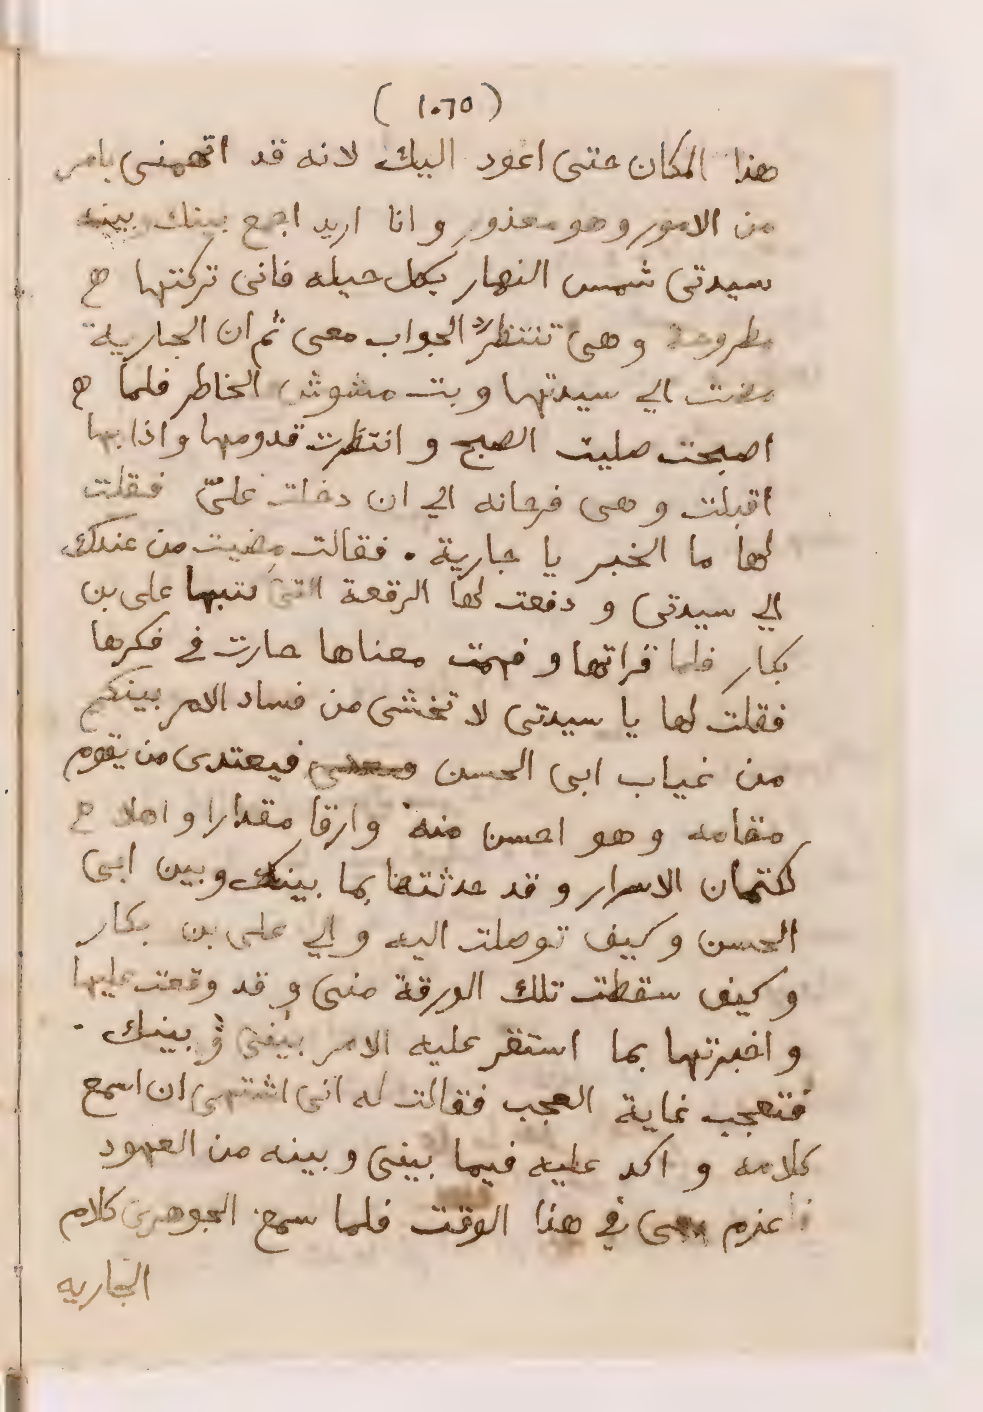 (١٠٦٥)
هذا المكان حتى اعود اليك لانه قد اتهمنى بامر
من الامور وهو معذور و انا اريد اجمع بينك وبينه
سيدتى شمس النهار بكل حيله فانى تركتها ح
مطروحة وهى تنتظر رد الجواب معى ثم ان الجارية
مضت الي سيدتها و بت مشوش الخاطر فلما ح
اصبحت صليت الصبح و انتظرت قدومها واذا بها
اقبلت وهى فرحانه الي ان دخلت علىّ فقلت
لها ما الخبر يا جارية . فقالت مضيت من عندك
الي سيدتى و دفعت لها الرقعة التى كتبها على بن
بكار فلما قراتها و فهمت معناها حارت في فكرها
فقلت لها يا سيدتى لا تخشى من فساد الامر بينكم
من غياب ابى الحسن فيعتدى من يقوم
مقامه و هو احسن منه وارقا مقدارا و اهلا ح
لكتمان الاسرار و قد حدثتها بما بينك وبين ابى
الحسن وكيف توصلت اليه و الي على بن بكار
وكيف سقطت تلك الورقة منى و قد وقعت عليها
و اخبرتها بما استقر عليه الامر بينى و بينك .
فتعجب غاية العجب فقالت له انى اشتهى ان اسمع
كلامه و اكد عليه فيما بينى و بينه من العهود
فاعزم معى في هذا الوقت فلما سمع الجوهرى كلام
الجاريه